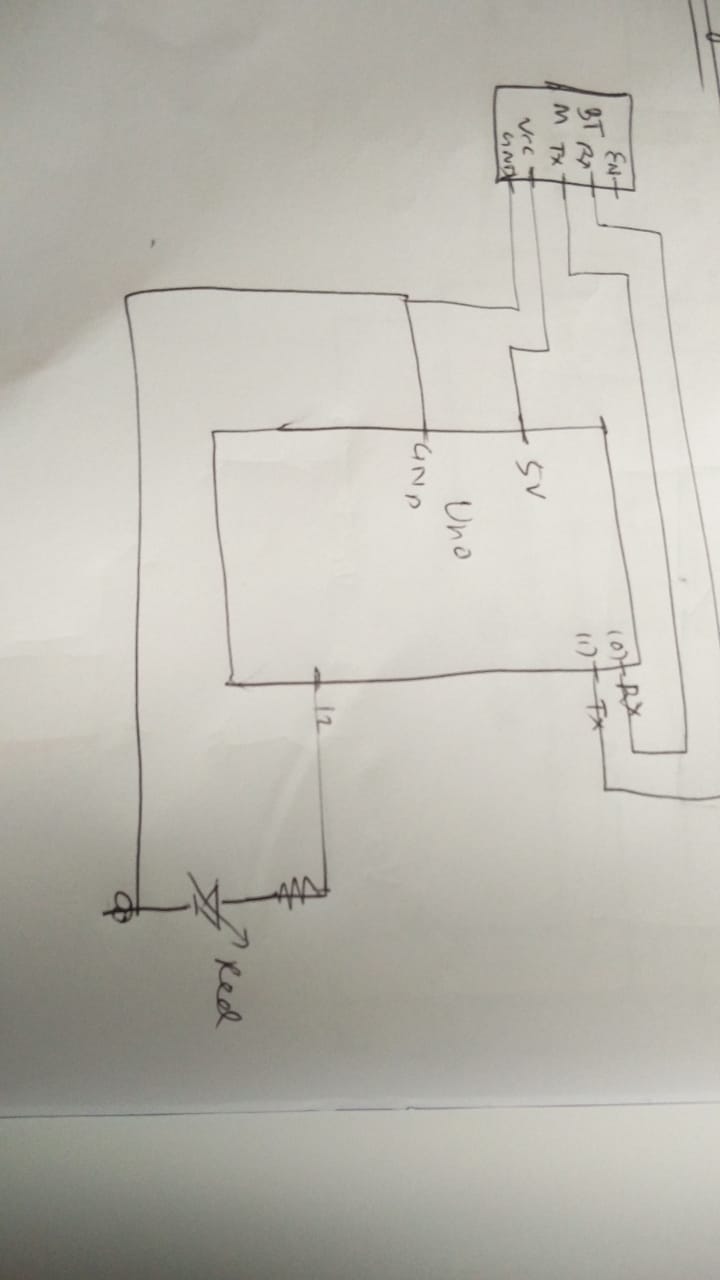 BT M
EN
Rx
TX
Vcc
GND
5V
GND
Uno
(0) RX
(1) TX
12
Red